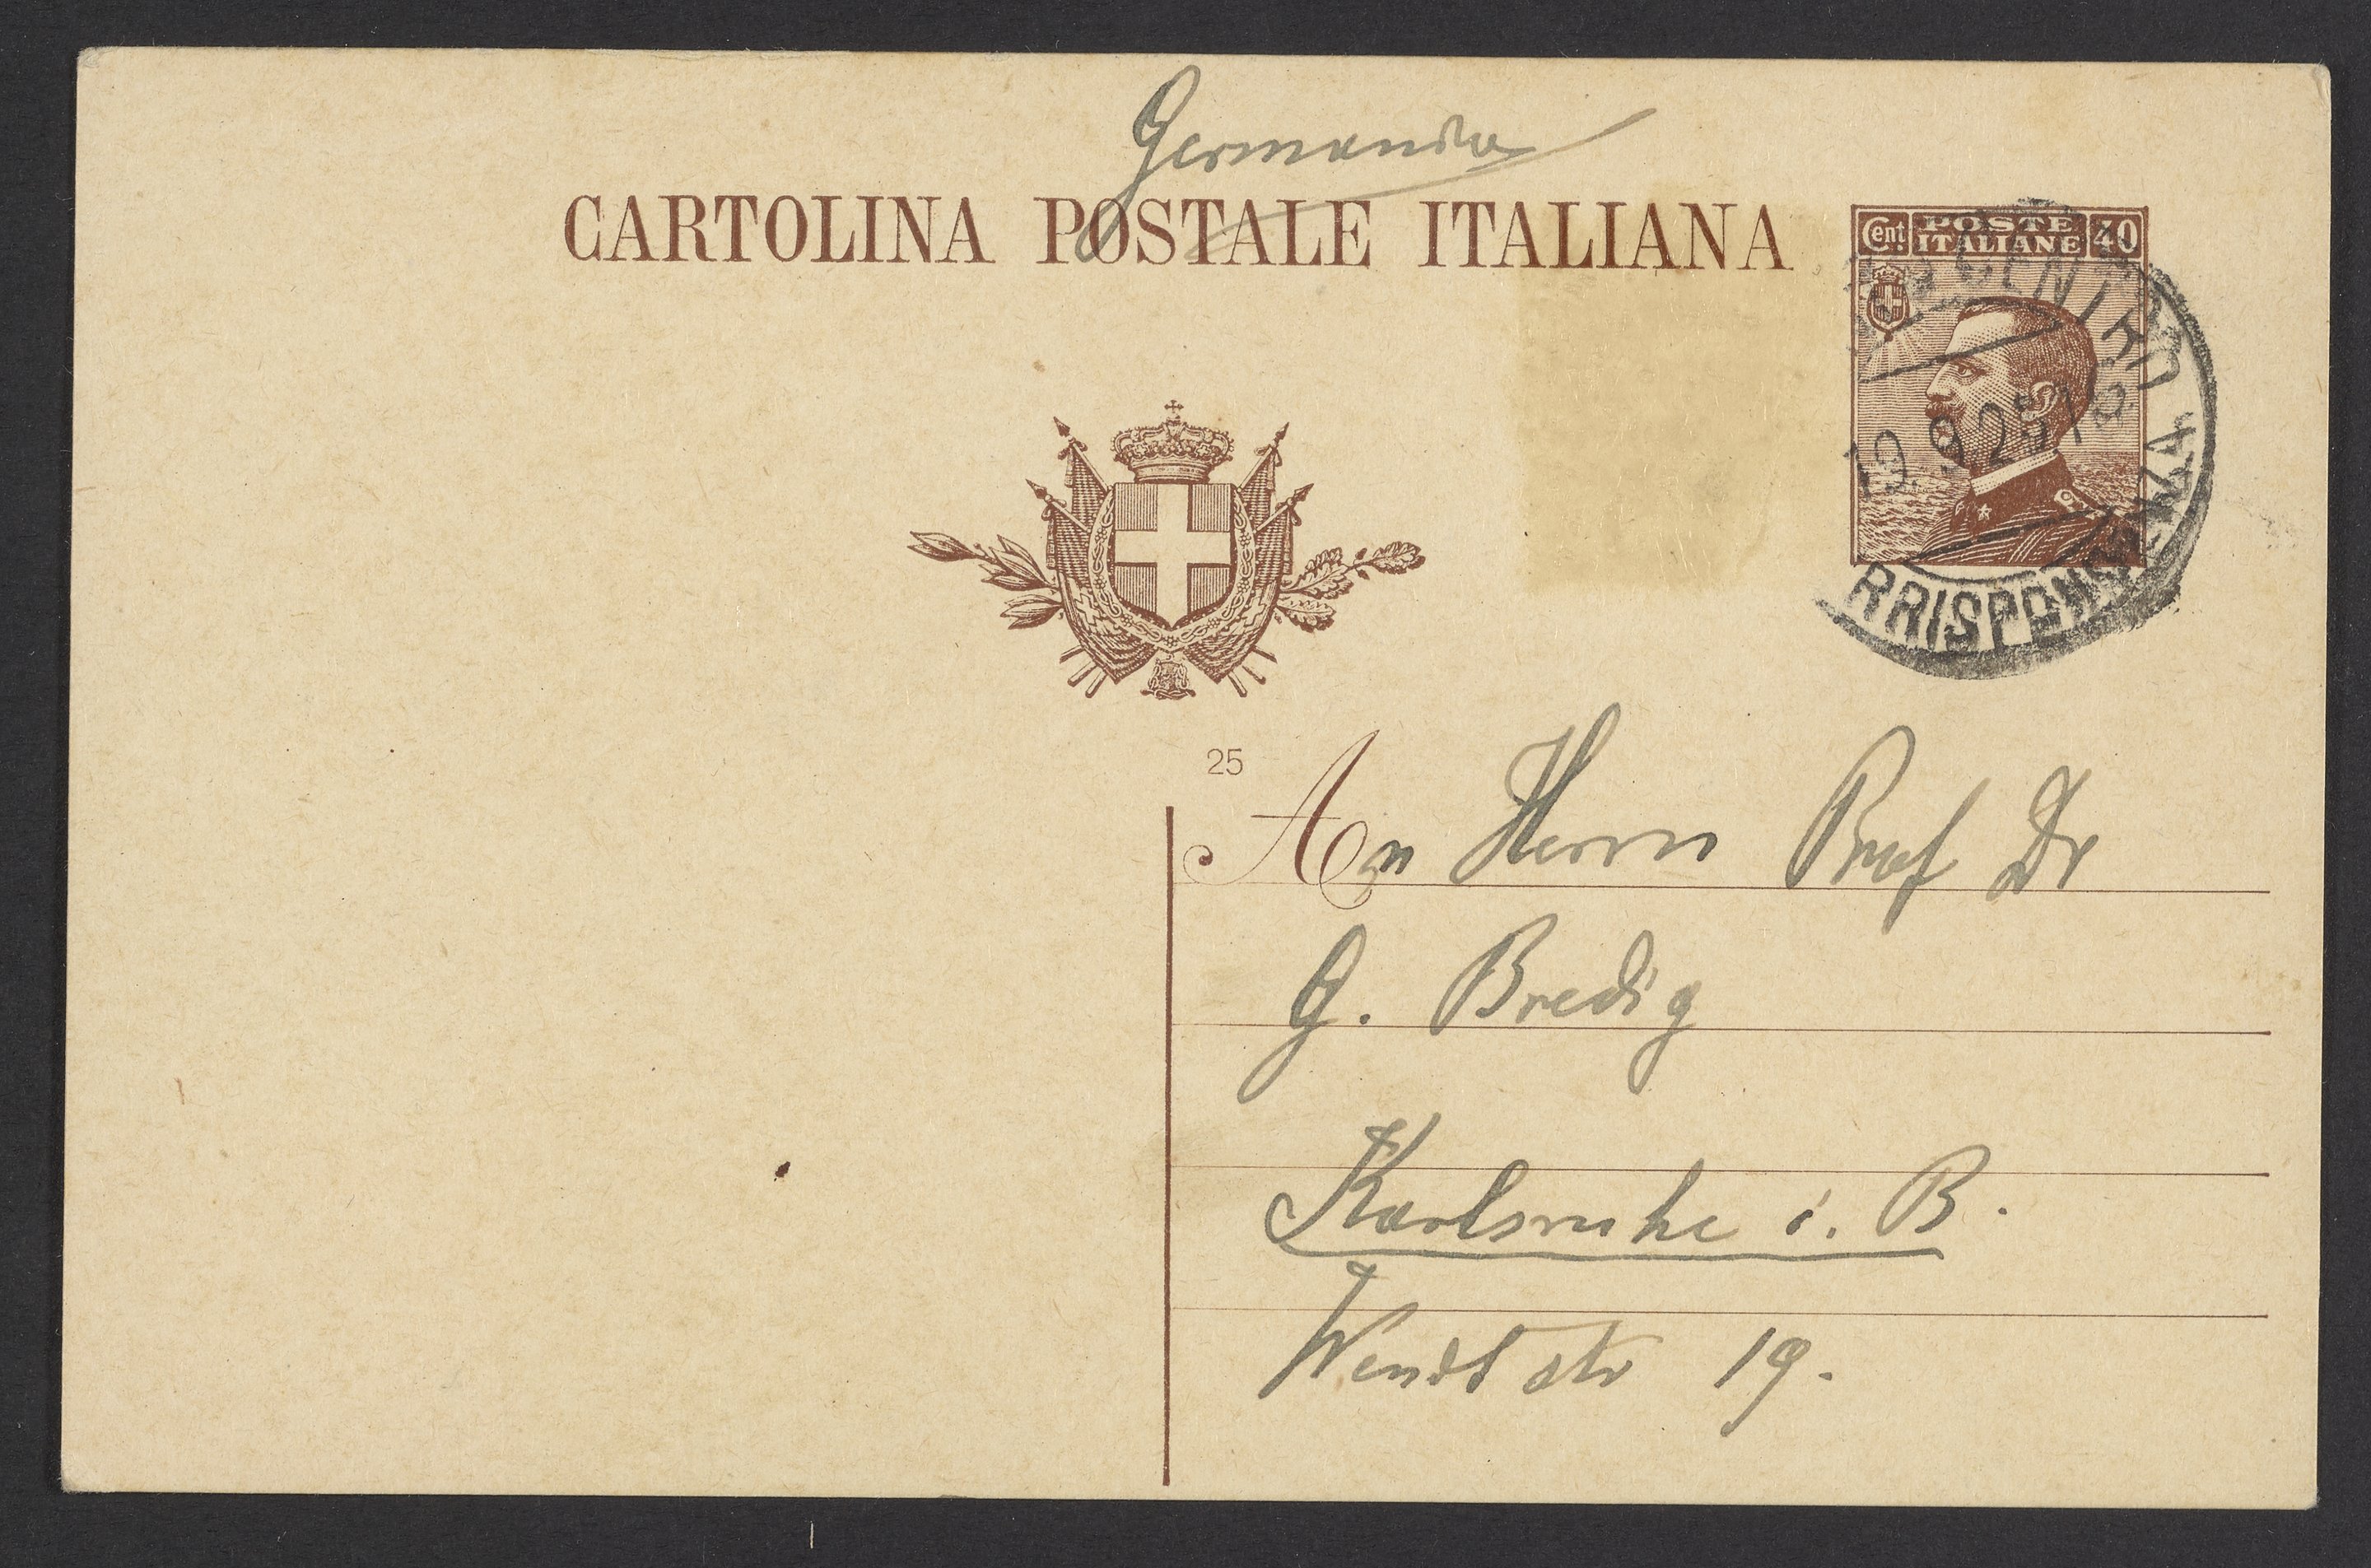 Germania
CARTOLINA POSTALE ITALIANA
Cent POSTE ITALIANE 40
CENTRO
19 9 25 18
RRISPOND
25
An Herrn Prof Dr
G. Bredig
Karlsruhe i. B.
Wendtstr 19.